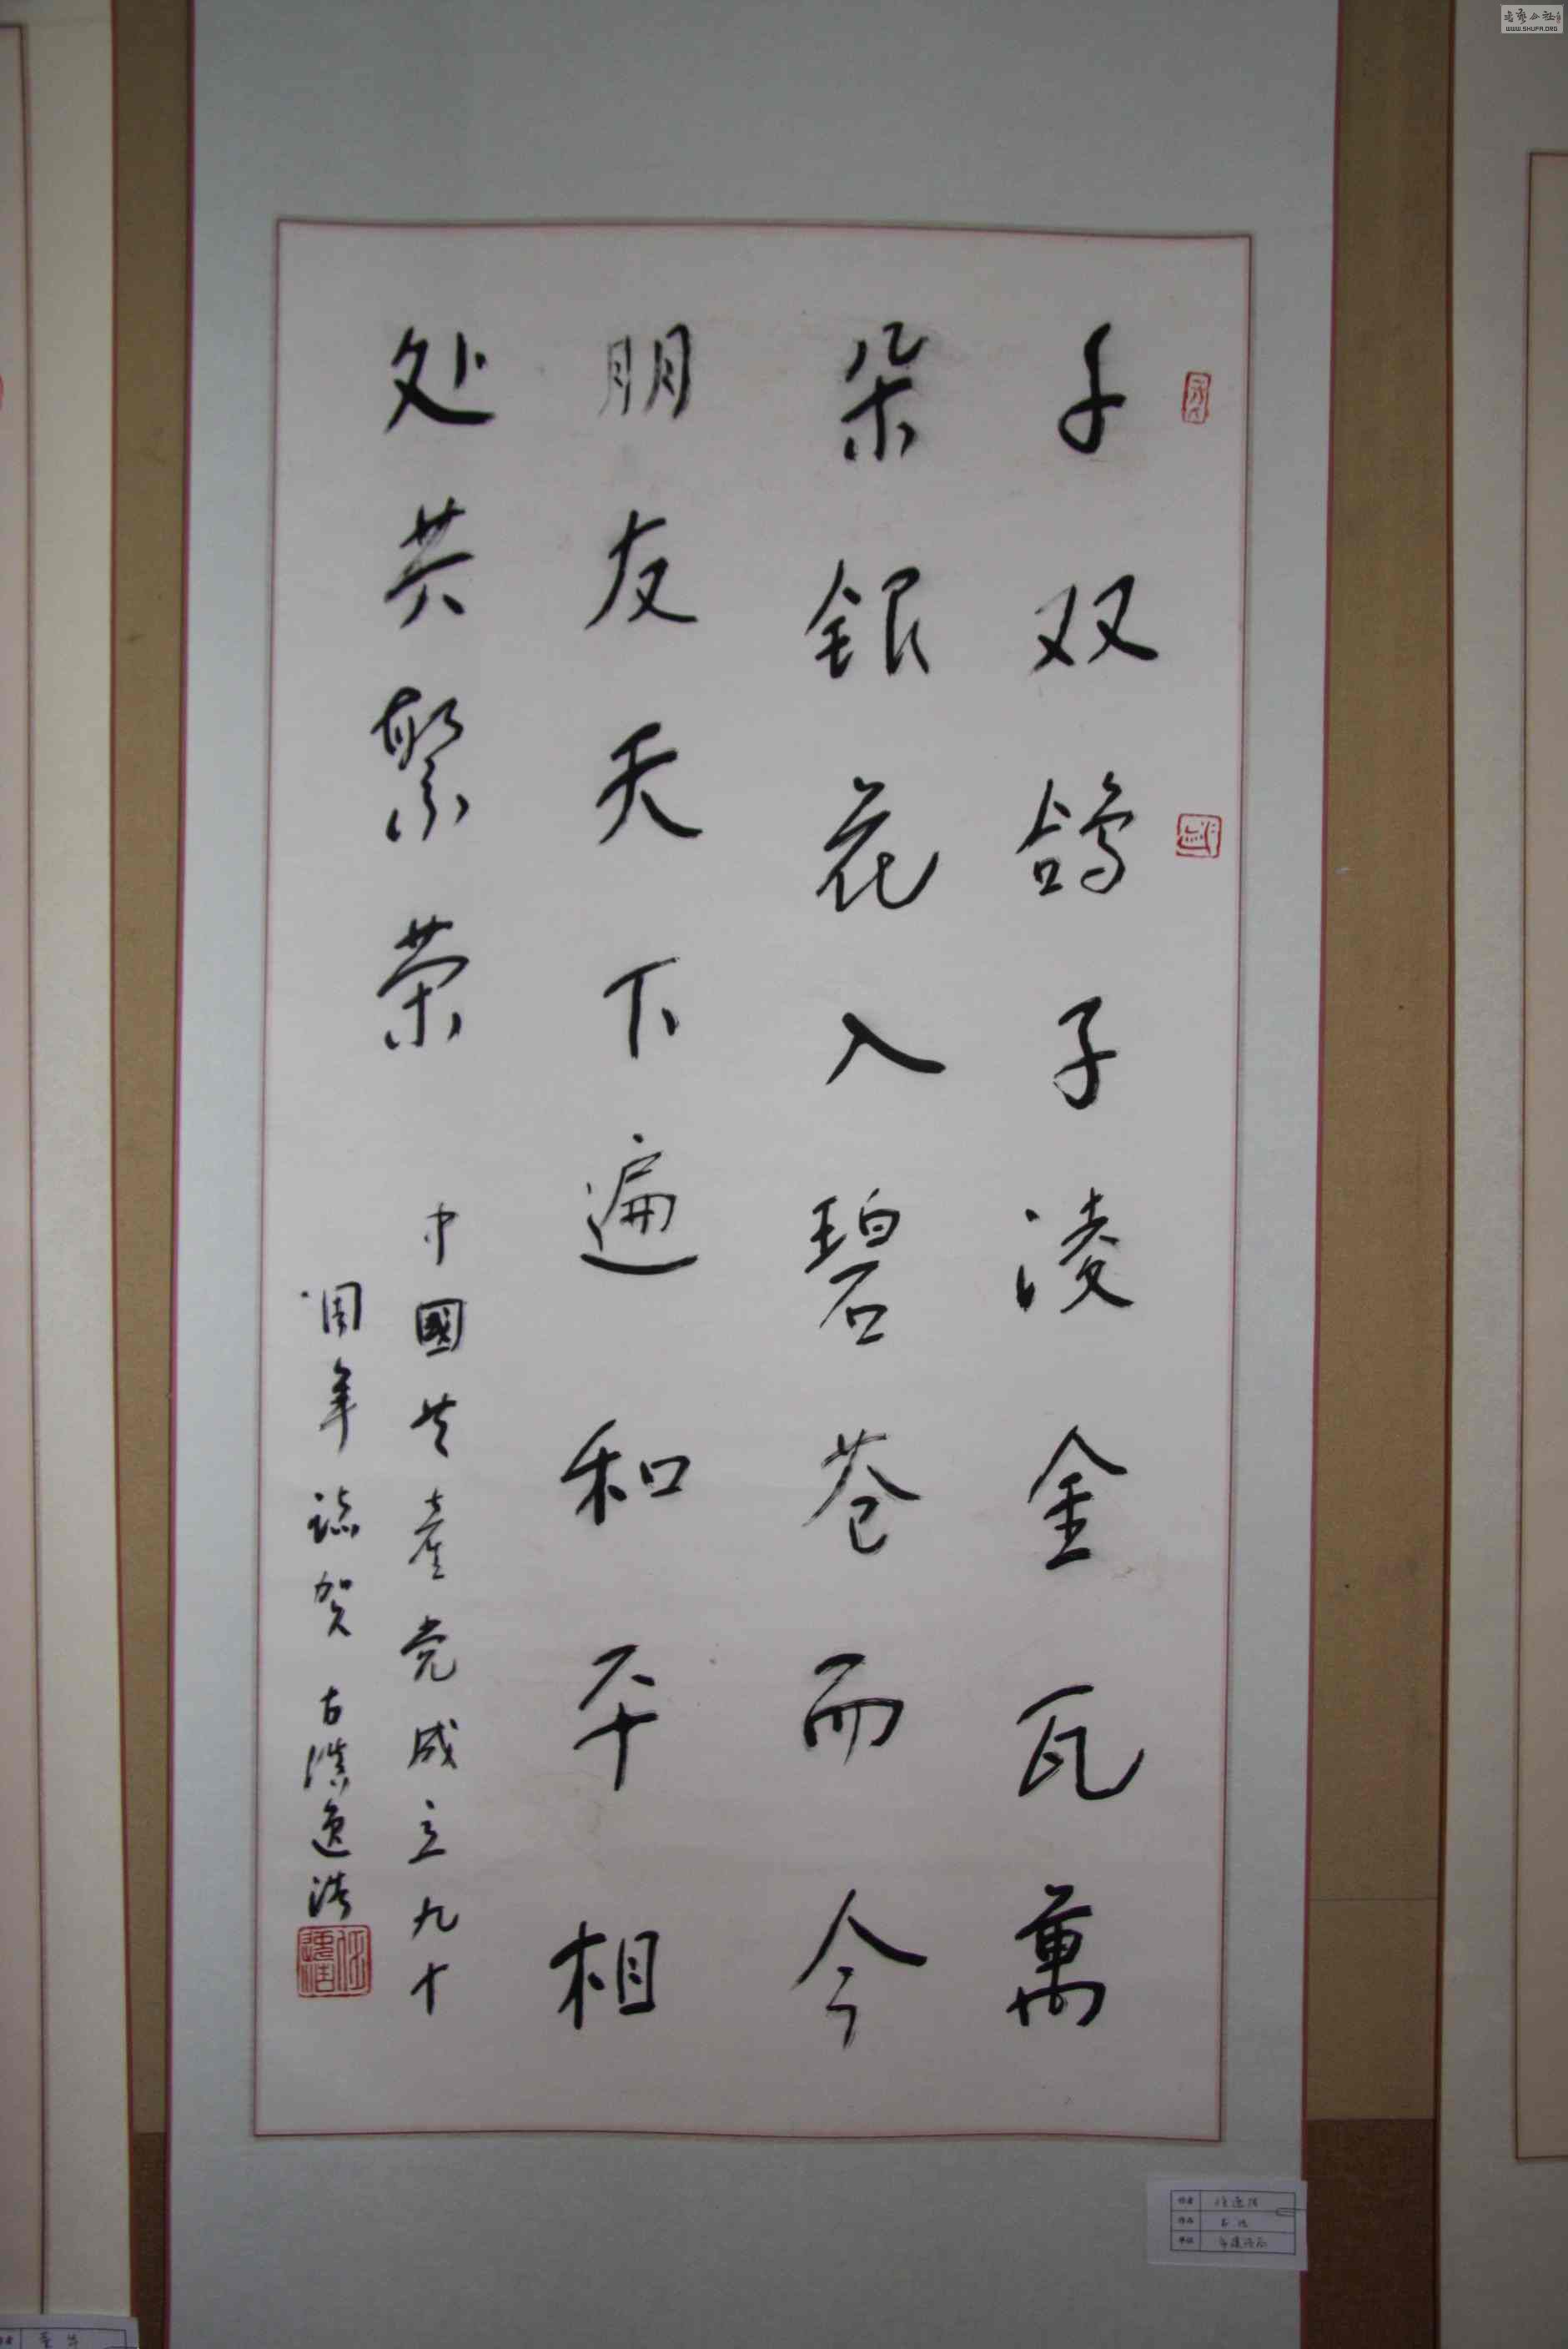 千双鸽子凌金瓦萬
朵银花入碧苍而今
朋友天下遍和平相
处共繁荣
中國共產党成立九十
周年誌贺古滇逸浩
WWW.SHUFA.ORG